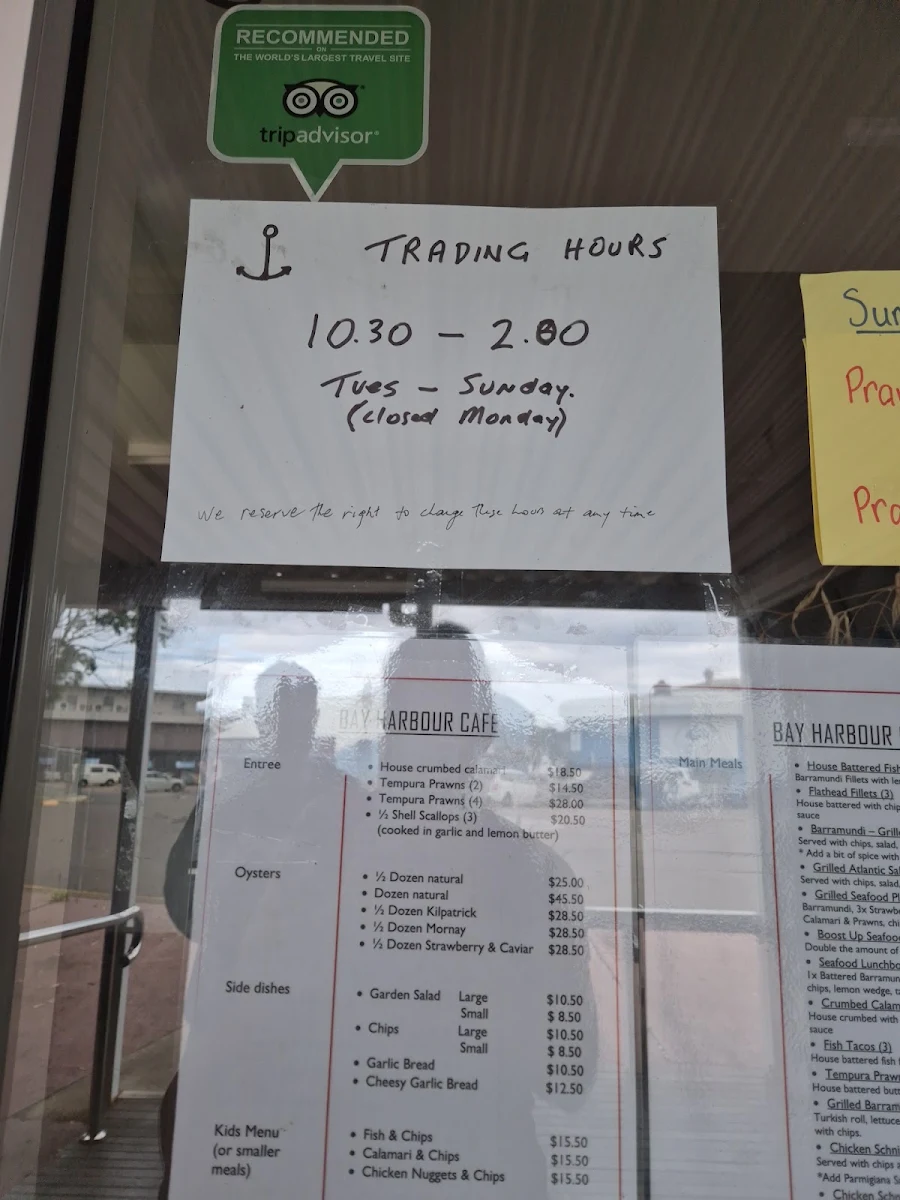 RECOMMENDED
ON
THE WORLD'S LARGEST TRAVEL SITE
tripadvisor®
TRADING HOURS
10.30 - 2.00
Tues - Sunday.
(closed Monday)
We reserve the right to change these hours at any time
Sun
Praw
Pra
BAY HARBOUR CAFE
Entree
• House crumbed calamari $18.50
• Tempura Prawns (2) $14.50
• Tempura Prawns (4) $28.00
• ½ Shell Scallops (3) $20.50
(cooked in garlic and lemon butter)
Oysters
• ½ Dozen natural $25.00
• Dozen natural $45.50
• ½ Dozen Kilpatrick $28.50
• ½ Dozen Mornay $28.50
• ½ Dozen Strawberry & Caviar $28.50
Side dishes
• Garden Salad Large $10.50
Small $ 8.50
• Chips Large $10.50
Small $ 8.50
• Garlic Bread $10.50
• Cheesy Garlic Bread $12.50
Kids Menu
(or smaller
meals)
• Fish & Chips $15.50
• Calamari & Chips $15.50
• Chicken Nuggets & Chips $15.50
BAY HARBOUR
Main Meals
• House Battered Fish
Barramundi Fillets with le
• Flathead Fillets (3)
House battered with chip
sauce
• Barramundi – Grille
Served with chips, salad,
* Add a bit of spice with
• Grilled Atlantic Sal
Served with chips, salad,
• Grilled Seafood Pl
Barramundi, 3x Strawbe
Calamari & Prawns, chi
• Boost Up Seafoo
Double the amount of
• Seafood Lunchbo
1x Battered Barramun
chips, lemon wedge, ta
• Crumbed Calam
House crumbed with
sauce
• Fish Tacos (3)
House battered fish f
• Tempura Prawn
House battered butt
• Grilled Barram
Turkish roll, lettuce
with chips.
• Chicken Schni
Served with chips a
*Add Parmigiana S
• Chicken Schn